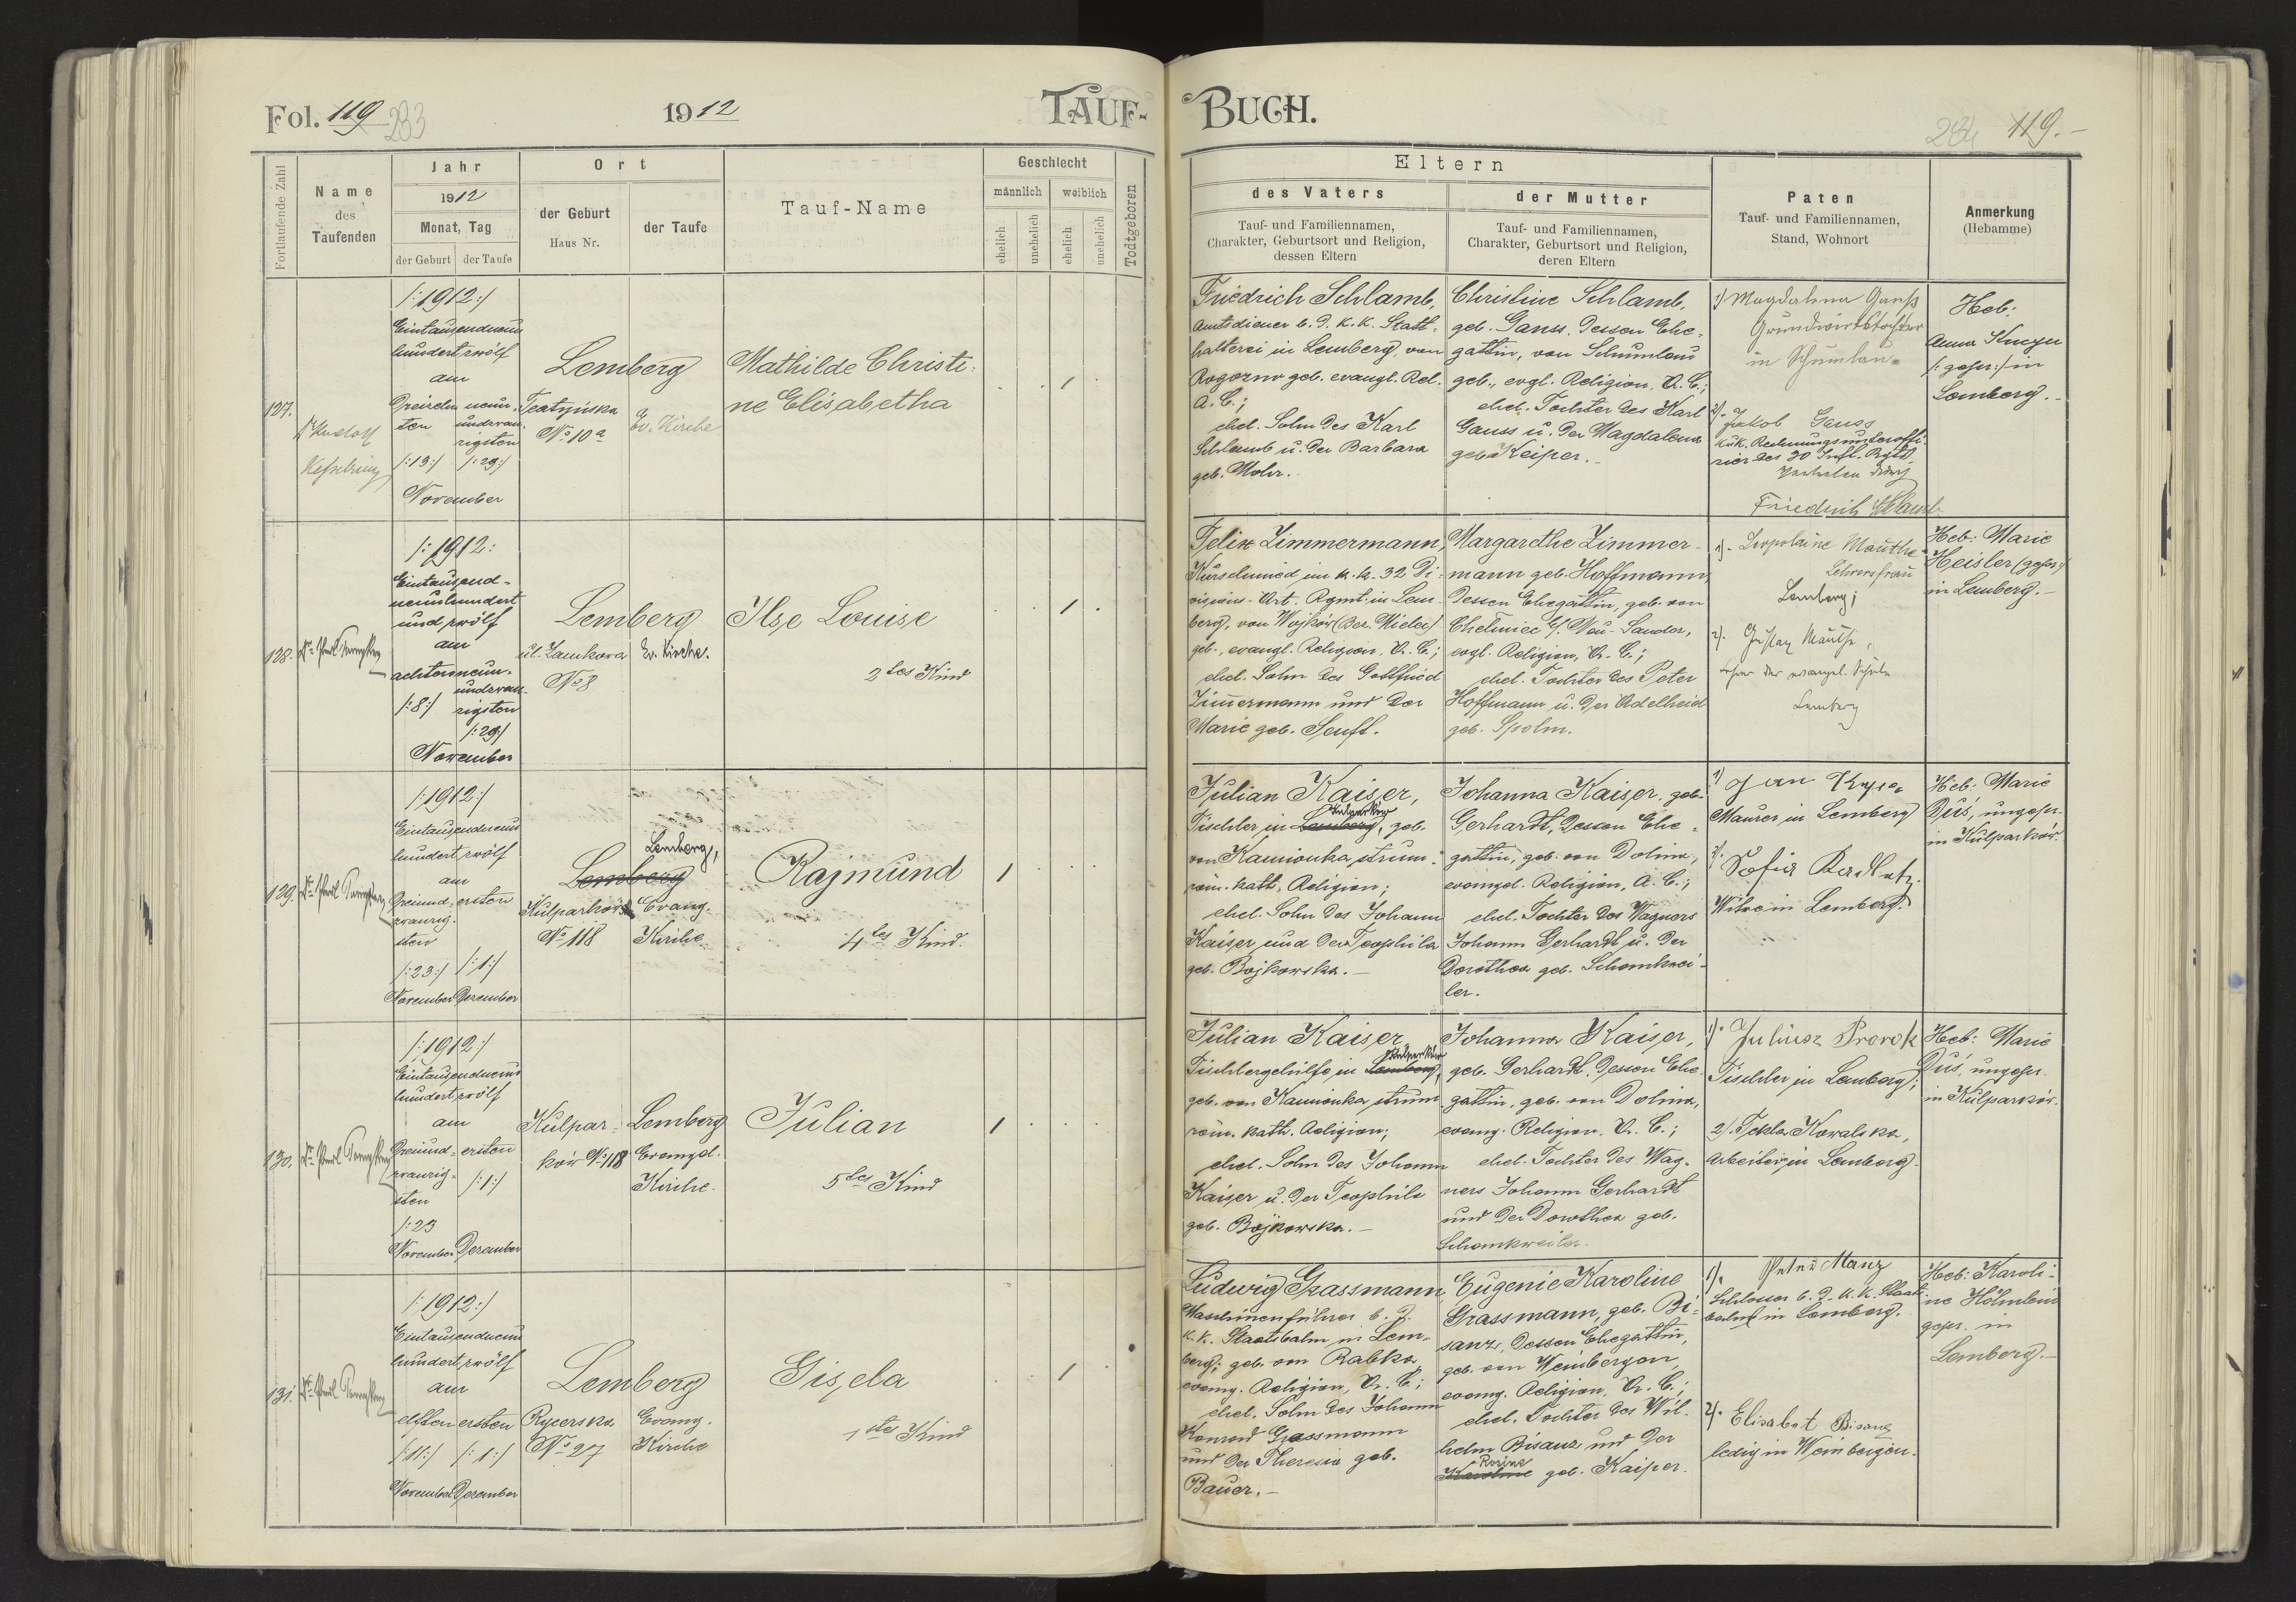 Fol. 119
233
1912
TAUF-
BUCH.
284 119.-
Fortlaufende Zahl
Name
des
Taufenden
Jahr
1912
Monat, Tag
der Geburt
der Taufe
Ort
der Geburt
Haus Nr.
der Taufe
Tauf-Name
Geschlecht
männlich
weiblich
ehelich
unehelich
ehelich
unehelich
Todtgeboren
Eltern
des Vaters
Tauf- und Familiennamen,
Charakter, Geburtsort und Religion,
dessen Eltern
der Mutter
Tauf- und Familiennamen,
Charakter, Geburtsort und Religion,
deren Eltern
Paten
Tauf- und Familiennamen,
Stand, Wohnort
Anmerkung
(Hebamme)
127.
Kesselring
/:1912:/
Eintausendneun
hundertzwölf
am
Dreizehn
ten
/:13:/
neun-
undzwan
zigsten
/:29:/
November
Lemberg
Teatyńska
No 10a
Ev. Kirche
Mathilde Christi-
ne Elisabetha
1
Friedrich Schlamb,
Amtsdiener b. d. k. k. Statt-
halterei in Lemberg, von
Rogozno geb. evangl. Rel.
A. C.;
ehel. Sohn des Karl
Schlamb u. der Barbara
geb. Mohr.
Christine Schlamb,
geb. Ganss, dessen Ehe-
gattin, von Schumlau
geb., evgl. Religion, A. C.;
ehel. Tochter des Karl
Gauss u. der Magdalena
geb. Keiper.
1) Magdalena Ganß
Grundwirtstochter
in Schumlau
2). Jakob Gauss
k.u.k. Rechnungsunteroffi-
zier des 30 Inft. Rgts
Vertreten durch
Friedrich Schlamb
Heb:
Anna
/: gepr:/ in
Lemberg.
128.
/:1912:
Eintausend-
neunhundert
und zwölf
am
achten
/:8:/
neun-
undzwan
zigsten
/:29:/
November
Lemberg
ul. Zamkowa
No 8
Ev. Kirche.
Ilse Louise
2tes Kind
1
Felix Zimmermann,
Kurschmied im k. k. 32 Di-
visions-Art. Rgmt. in Lem-
berg, von Wojków (Bez. Mielec)
geb., evangl. Religion, A. C.;
ehel. Sohn des Gottfried
Zimmermann und der
Marie geb. Senft.
Margarethe Zimmer-
mann geb. Hoffmann,
dessen Ehegattin, geb. von
Chelmiec b/ Neu-Sandez,
evgl. Religion, A. C.;
ehel. Tochter des Peter
Hoffmann u. der Adelheid
geb. Spolm.
1). Leopoldine Mauthe
Lehrersfrau
Lemberg;
2). Gustav Mauthe,
Lehrer der evangel. Schule
Lemberg
Heb: Marie
Heisler (gepr.)
in Lemberg.
129.
/:1912:/
Eintausendneun
hundertzwölf
am
Dreiund-
zwanzig-
sten
/:23:/
November
ersten
/:1:/
Dezember
Lemberg
Kulparków
No 118
Lemberg,
Evang.
Kirche
Rajmund
4tes Kind.
1
Julian Kaiser,
Kulparków
Tischler in Lemberg, geb.
von Kamionka strum.
röm. kath. Religion;
ehel. Sohn des Johann
Kaiser und der Teophila
geb. Bojkowska.
Johanna Kaiser, geb.
Gerhardt, dessen Ehe-
gattin, geb. von Dolina,
evangel. Religion, A. C.;
ehel. Tochter des Wagners
Johann Gerhardt u. der
Dorothea geb. Schankwei-
ler.
1) Jan
Maurer in Lemberg
2). Sofia Kadletz
Witwe in Lemberg.
Heb: Marie
Duś, ungepr.
in Kulparków.
130.
/:1912:/
Eintausendneun
hundertzwölf
am
Dreiund-
zwanzig-
sten
/:23
November
ersten
/:1:/
Dezember
Kulpar-
ków No 118
Lemberg
Evangel.
Kirche
Julian
5tes Kind
1
Julian Kaiser,
Kulparków
Tischlergehilfe in Lemberg,
geb. von Kamionka strum
röm. kath. Religion;
ehel. Sohn des Johann
Kaiser u. der Teophila
geb. Bojkowska.
Johanna Kaiser,
geb. Gerhardt, dessen Ehe-
gattin, geb. von Dolina,
evang. Religion, A. C.;
ehel. Tochter des Wag-
ners Johann Gerhardt
und der Dorothea geb.
Schankweiler.
1). Juliusz Prorok
Tischler in Lemberg;
2). Tekla Kowalska,
Arbeiterin in Lemberg.
Heb: Marie
Duś, ungepr.
in Kulparków.
131.
/:1912:/
Eintausendneun
hundertzwölf
am
elften
/:11:/
November
ersten
/:1:/
Dezember
Lemberg
Rycerska
No 27
Evang.
Kirche
Gisela
1tes Kind
1
Ludwig Grassmann
Maschinenführer b. d.
k. k. Staatsbahn in Lem-
berg; geb. von Rabka,
evang. Religion, A. C.;
ehel. Sohn des Johann
Konrad Grassmann
und der Theresia geb.
Bauer.
Eugenie Karoline
Grassmann, geb. Bi-
sanz, dessen Ehegattin,
geb. von Weinbergen,
evang. Religion, A. C.;
ehel. Tochter des Wil-
helm Bisanz und der
Rosine
Karoline geb. Kaiper.
1). Peter Manz
Schlosser b. d. k. k. Staats
bahn in Lemberg.
2). Elisabet Bisanz
ledig in Weinbergen.
Heb: Karoli-
ne Hölmlein
gepr. in
Lemberg.